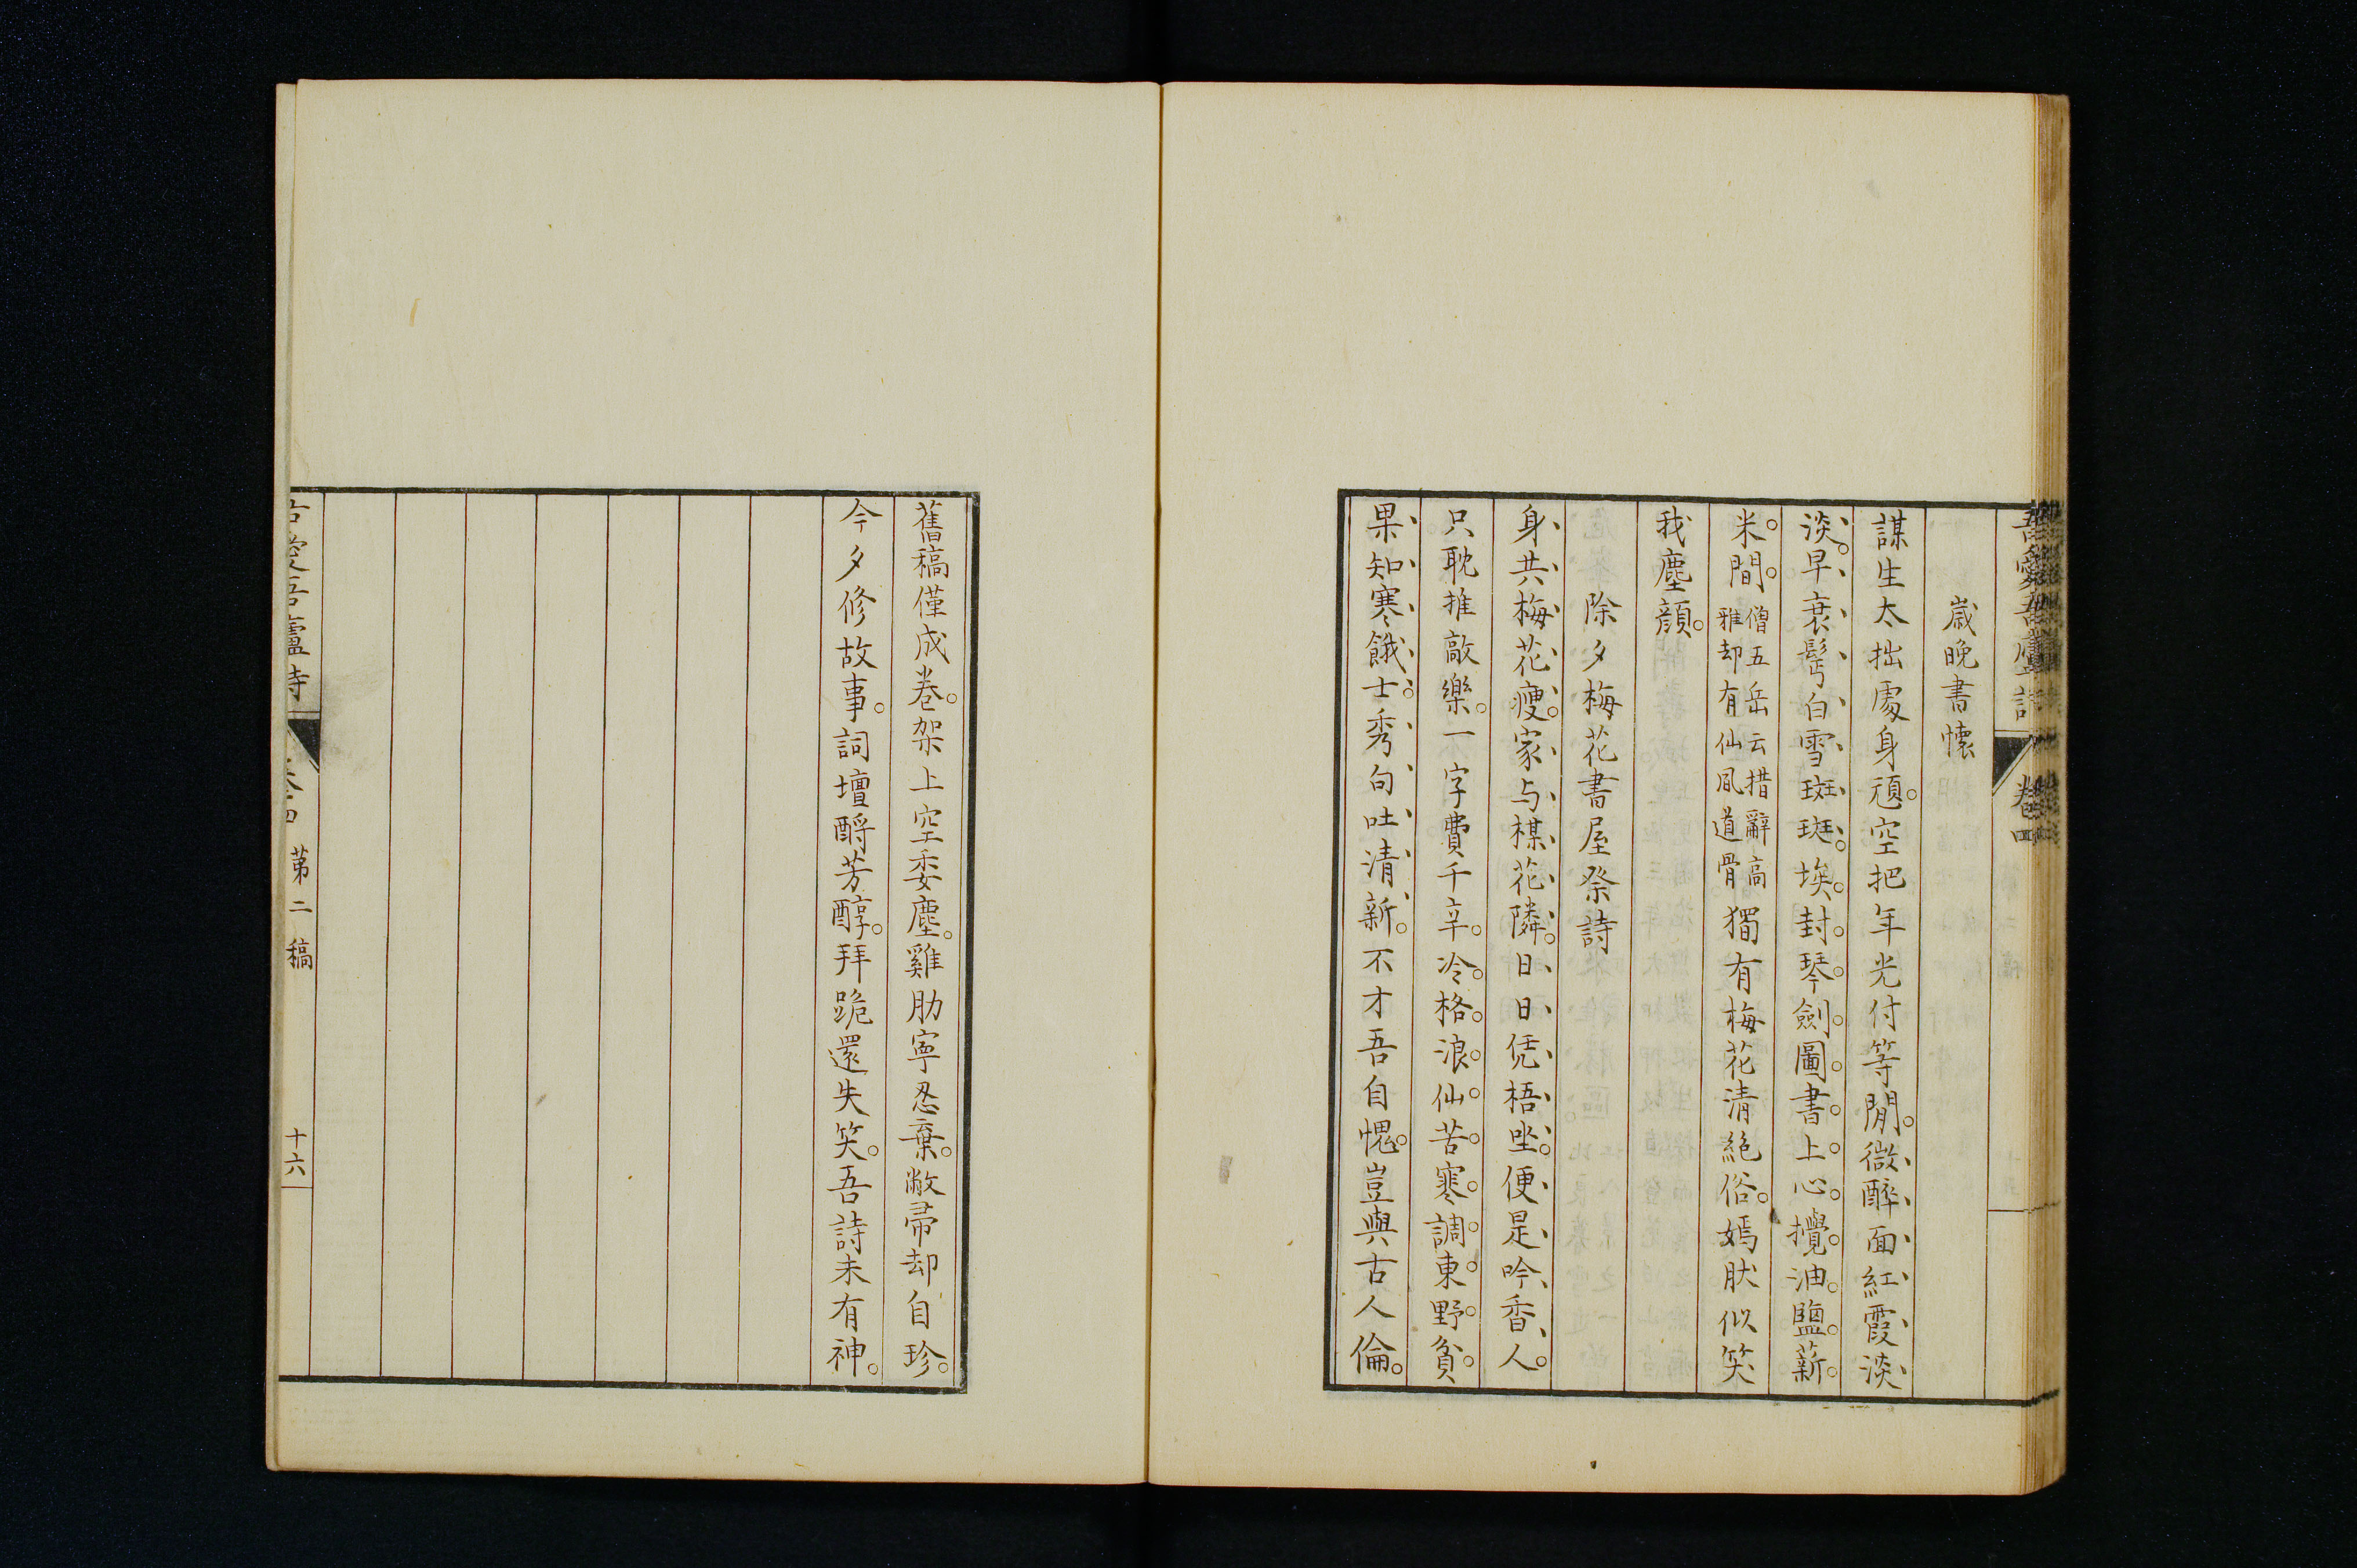 吾愛吾廬詩 卷四
歲晚書懷
謀生太拙處身頑。空把年光付等閒。微醉面紅霞淡
淡。早衰鬂白雪斑斑。埃封琴劍圖書上。心攪油鹽薪
米間。僧五岳云措辭高
雅却有仙風道骨獨有梅花清絕俗。嫣肰似笑
我塵顔。
除夕梅花書屋祭詩
身共梅花瘦。家与楳花隣。日日凭梧坐。便是吟香人。
只耽推敲樂。一字費千辛。冷格浪仙苦。寒調東野貧。
果知寒餓士。秀句吐清新。不才吾自愧。豈與古人倫。
舊稿僅成卷。架上空委塵。雞肋寧忍棄。敝帚却自珍。
今夕修故事。詞壇酹芳醇。拜跪還失笑。吾詩未有神。
吾愛吾廬詩 卷四 苐二稿 十六